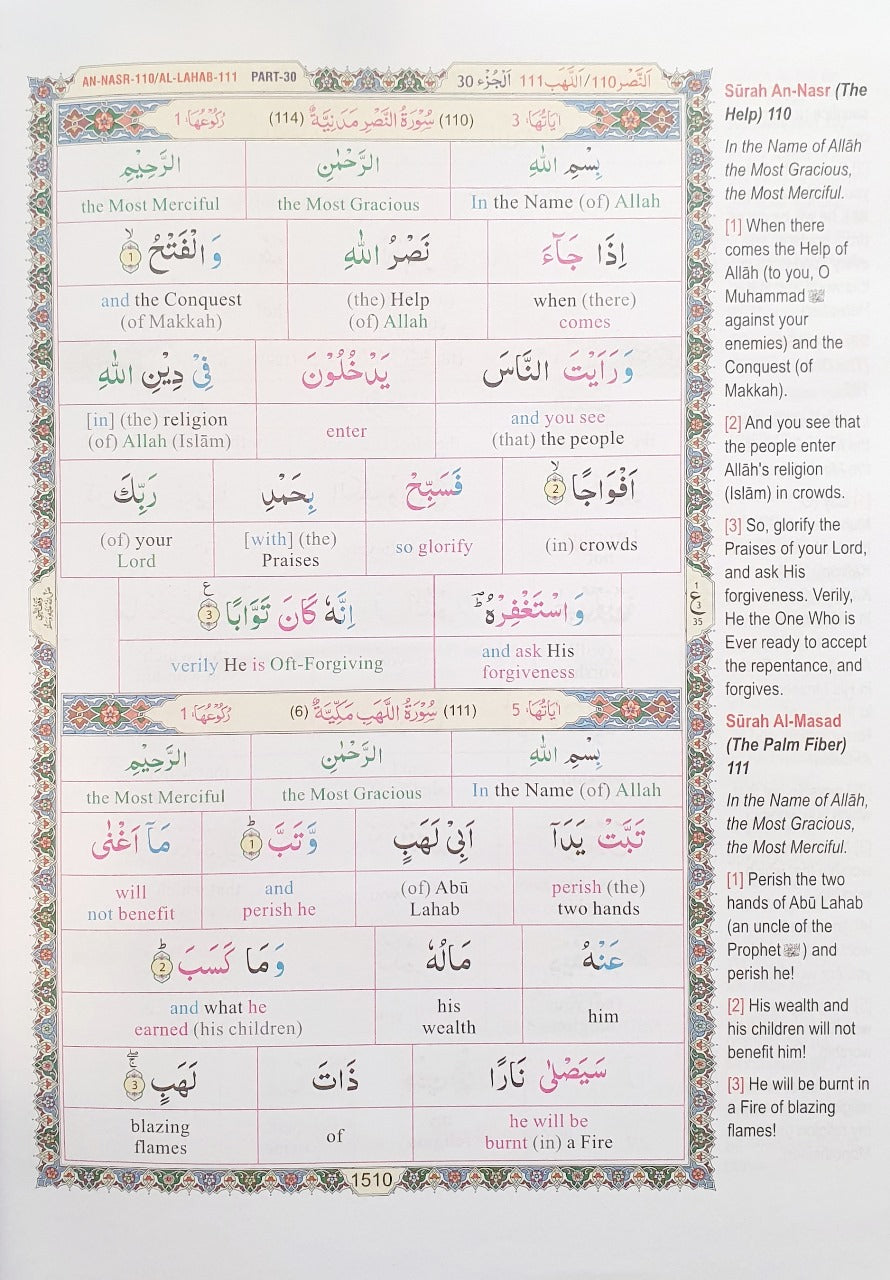 AN-NASR-110/AL-LAHAB-111 PART-30
اَلنَّصْر 110/اَللَّهَب 111 اَلْجُزْء 30
اٰيَاتُهَا: 3 (110) سُوْرَةُ النَّصْرِ مَدَنِيَّةٌ (114) رُكُوْعُهَا: 1
بِسْمِ اللّٰهِ الرَّحْمٰنِ الرَّحِيْمِ
In the Name (of) Allah the Most Gracious the Most Merciful
اِذَا جَآءَ نَصْرُ اللّٰهِ وَالْفَتْحُ ۙ 1
when (there) comes (the) Help (of) Allah and the Conquest (of Makkah)
وَرَاَيْتَ النَّاسَ يَدْخُلُوْنَ فِيْ دِيْنِ اللّٰهِ
and you see (that) the people enter [in] (the) religion (of) Allah (Islām)
اَفْوَاجًا ۙ 2 فَسَبِّحْ بِحَمْدِ رَبِّكَ
(in) crowds so glorify [with] (the) Praises (of) your Lord
وَاسْتَغْفِرْهُ ؕ اِنَّهٗ كَانَ تَوَّابًا 3 ع
and ask His forgiveness verily He is Oft-Forgiving
1
ع
3
35
اٰيَاتُهَا: 5 (111) سُوْرَةُ اللَّهَبِ مَكِّيَّةٌ (6) رُكُوْعُهَا: 1
بِسْمِ اللّٰهِ الرَّحْمٰنِ الرَّحِيْمِ
In the Name (of) Allah the Most Gracious the Most Merciful
تَبَّتْ يَدَآ اَبِيْ لَهَبٍ وَّتَبَّ ؕ 1 مَآ اَغْنٰى
perish (the) two hands (of) Abū Lahab and perish he will not benefit
عَنْهُ مَالُهٗ وَمَا كَسَبَ ؕ 2
him his wealth and what he earned (his children)
سَيَصْلٰى نَارًا ذَاتَ لَهَبٍ ۚ 3
he will be burnt (in) a Fire of blazing flames
1510
Sūrah An-Nasr (The
Help) 110
In the Name of Allāh
the Most Gracious,
the Most Merciful.
[1] When there
comes the Help of
Allāh (to you, O
Muhammad ﷺ
against your
enemies) and the
Conquest (of
Makkah).
[2] And you see that
the people enter
Allāh's religion
(Islām) in crowds.
[3] So, glorify the
Praises of your Lord,
and ask His
forgiveness. Verily,
He the One Who is
Ever ready to accept
the repentance, and
forgives.
Sūrah Al-Masad
(The Palm Fiber)
111
In the Name of Allāh,
the Most Gracious,
the Most Merciful.
[1] Perish the two
hands of Abū Lahab
(an uncle of the
Prophet ﷺ) and
perish he!
[2] His wealth and
his children will not
benefit him!
[3] He will be burnt in
a Fire of blazing
flames!